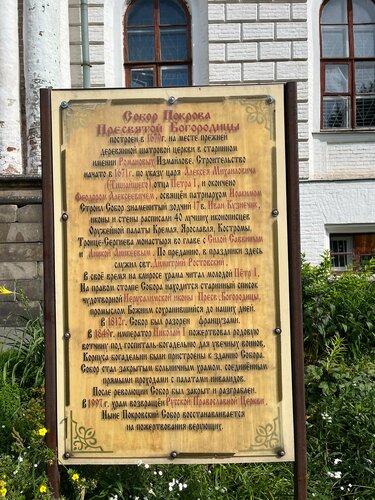 Собор Покрова
Пресвятой Богородицы
построен в 1679г. на месте прежней
деревянной шатровой церкви в старинном
имении Романовых Измайлове. Строительство
начато в 1671г. по указу царя Алексея Михайловича
(Тишайшего) отца Петра I, и окончено
Феодором Алексеевичем, освящён патриархом Иоакимом
Строил Собор знаменитый зодчий 17в. Иван Кузнечик,
иконы и стены расписали 40 лучших иконописцев
Оружейной палаты Кремля, Ярославля, Костромы,
Троице-Сергиева монастыря во главе с Силой Савиным
и Никой Аникеевым. По преданию, в праздники здесь
служил свт. Димитрий Ростовский.
В своё время на клиросе храма читал молодой Пётр I.
На правом столпе Собора находится старинный список
чудотворной Иерусалимской иконы Пресв. Богородицы,
промыслом Божиим сохранившийся до наших дней.
В 1812г. Собор был разорён французами.
В 1840г. император Николай I пожертвовал родовую
вотчину под госпиталь-богадельню для увечных воинов.
Корпуса богадельни были пристроены к зданию Собора.
Собор стал закрытым больничным храмом, соединённым
прямыми проходами с палатами инвалидов.
После революции Собор был закрыт и разграблен.
В 1997г. храм возвращён Русской Православной Церкви.
Ныне Покровский Собор восстанавливается
на пожертвования верующих.